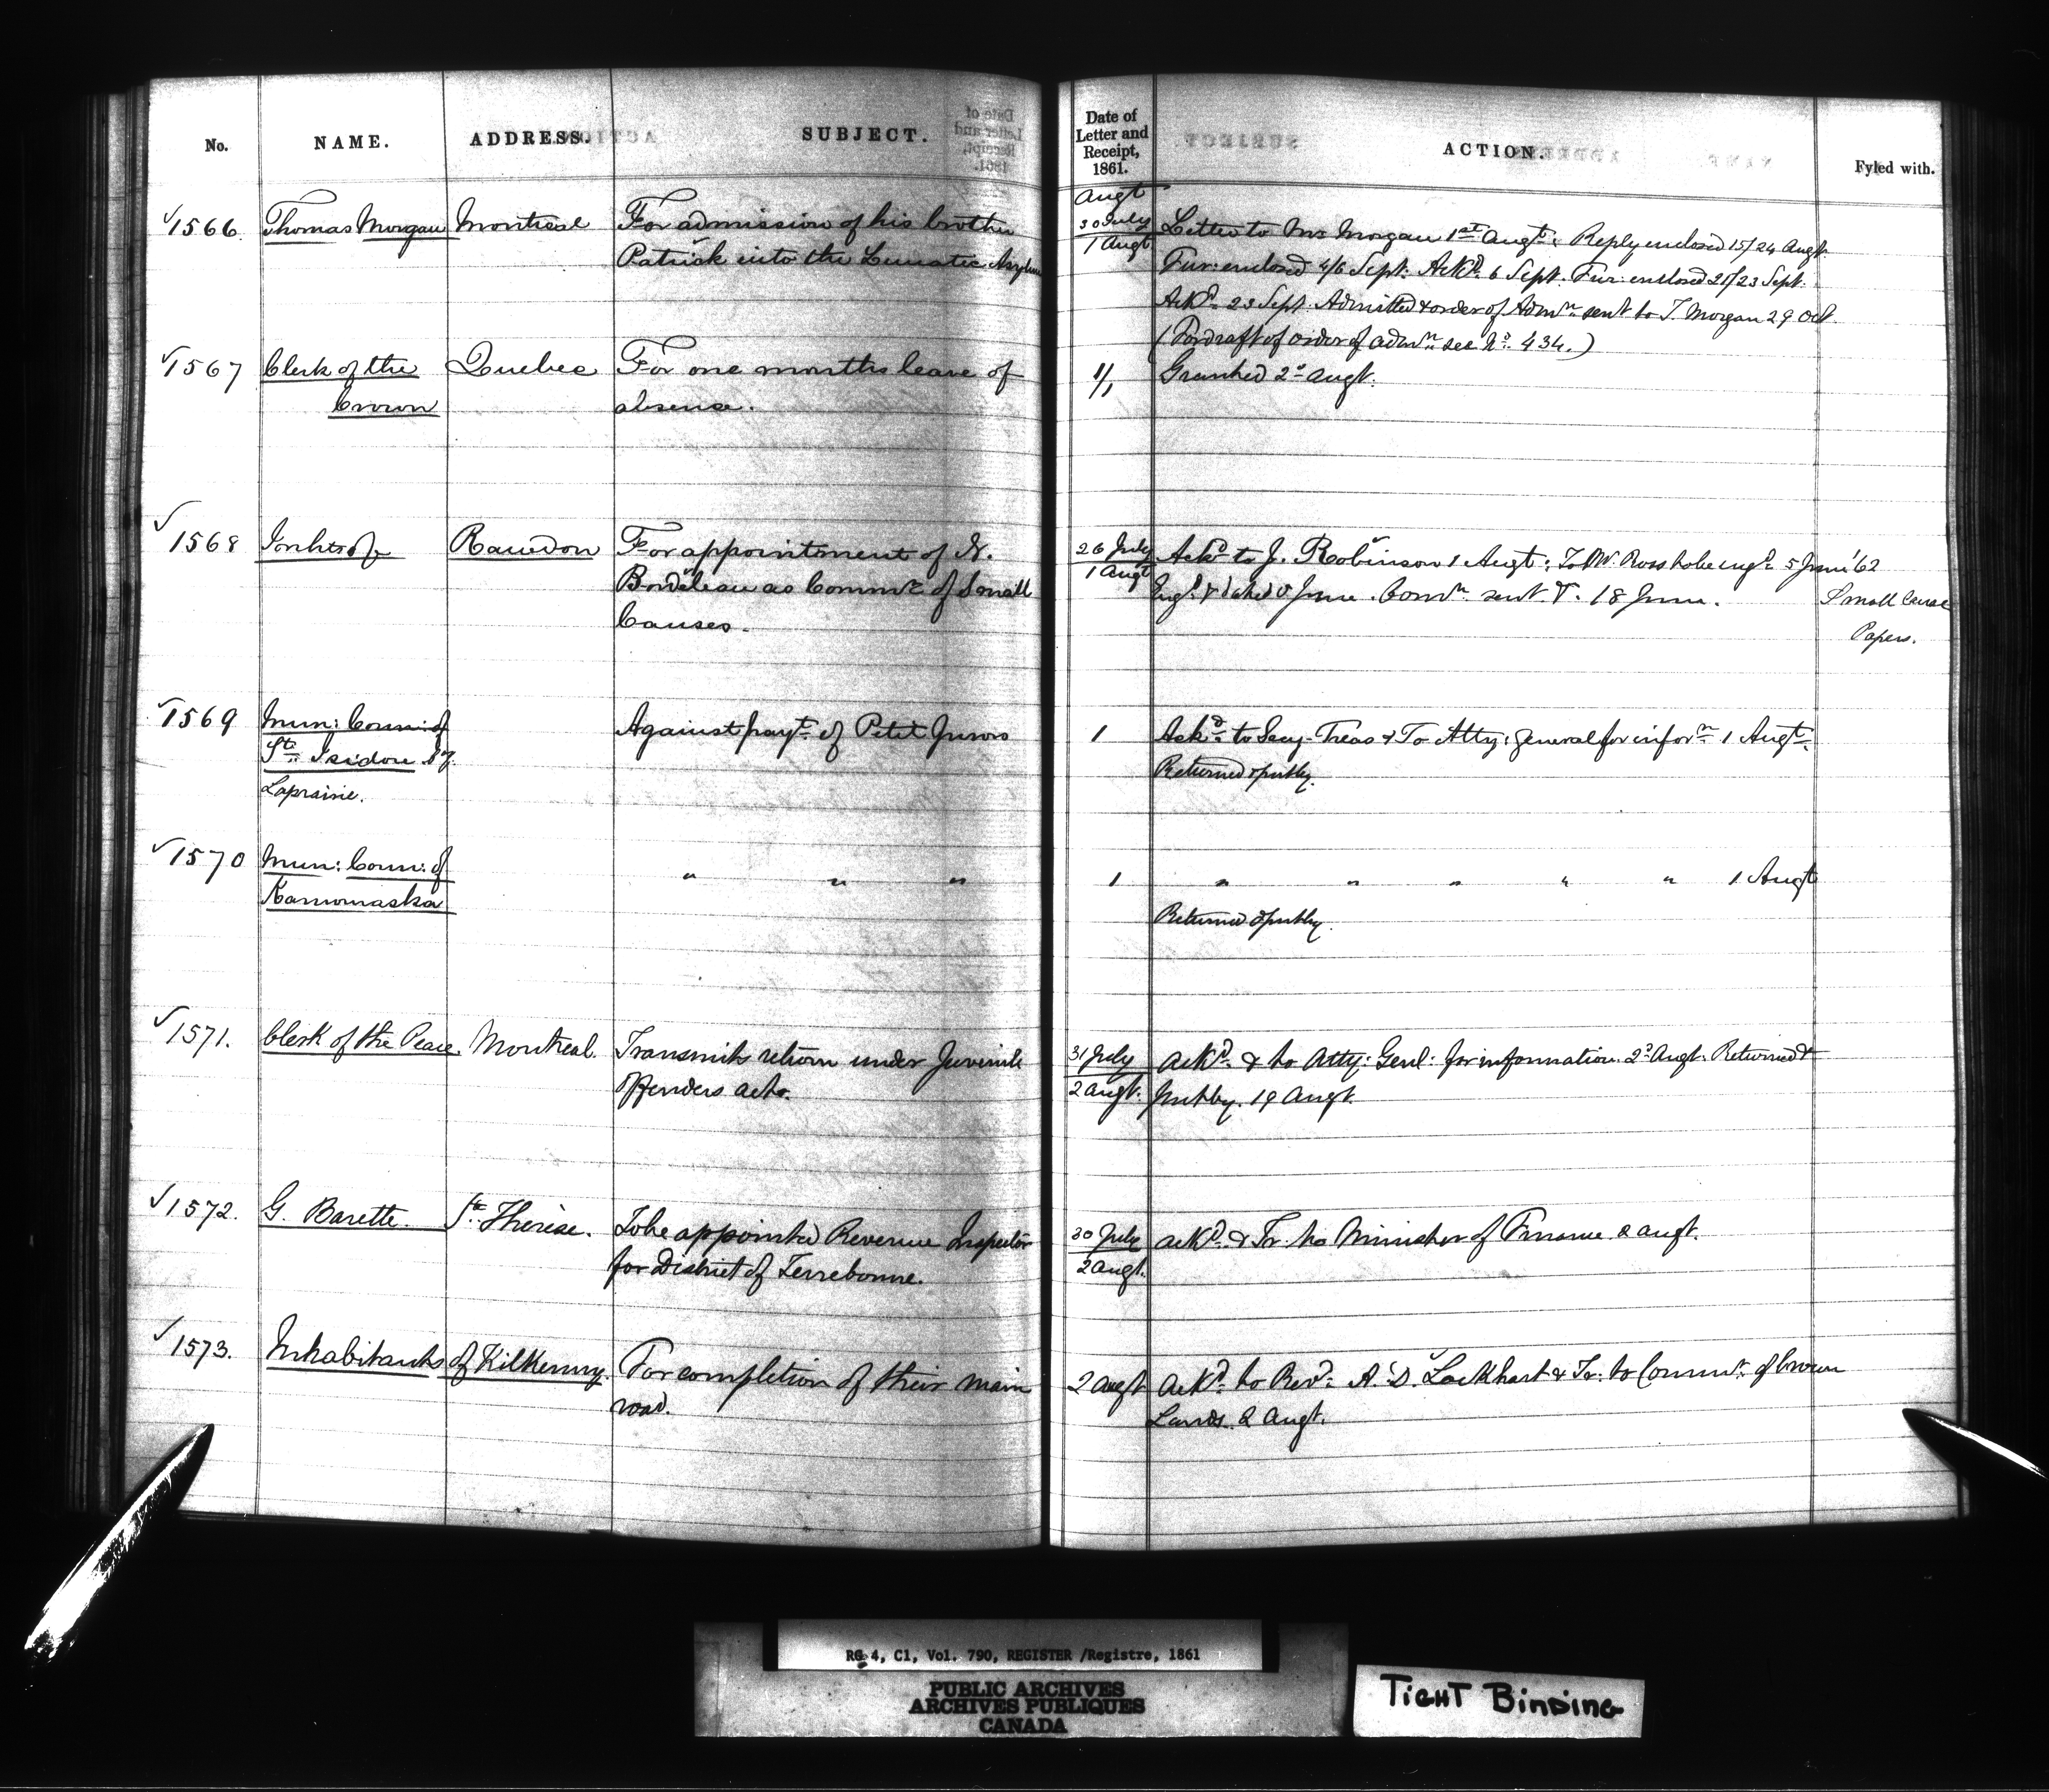 No. NAME. ADDRESS. SUBJECT. Date of Letter and Receipt, 1861. ACTION. Fyled with.
Augt
1566. Thomas Morgan Montreal For admission of his brother 30 July Letter to Mr Morgan 1st Augt: Reply enclosed 15/24 Augt.
Patrick into the Lunatic Asylum 1 Augt Fur: enclosed 4/6 Sept: Ackd. 6 Sept. Fur: enclosed 21/23 Sept.
Ackd. 23 Sept. Admitted & order of Admn. sent to T. Morgan 29 Oct.
(For draft of order of admn. see No. 434.)
1567 Clerk of the Quebec For one months leave of 1/1 Granted 2d Augt.
Crown absence.
1568 Inhts of Rawdon For appointment of N. 26 July Ackd to J. Robinson 1 Augt: To W. Ross 5 June '62
Bordeleau as Commr. of Small 1 Augt 5 June. Comn. sent 18 June. Small Cause
Causes. Papers.
1569 Mun: Coun: of Against payt. of Petit Jurors 1 Ackd. to Secy. Treas & To Atty: General for inforn 1 Augt.
St. Isidore Returned & put by.
Laprairie.
1570 Mun: Coun: of " " " 1 " " " " " 1 Augt
Kamouraska Returned & put by.
1571. Clerk of the Peace. Montreal. Transmits return under Juvenile 31 July Ackd. & to Atty: Genl: for information 2d Augt. Returned &
Offenders acts. 2 Augt. put by. 19 Augt.
1572. G. Barette. Ste. Therese. To be appointed Revenue Inspector 30 July Ackd. & Tr. to Minister of Finance 2 Augt.
for District of Terrebonne. 2 Augt.
1573. Inhabitants of Kilkenny. For completion of their main 2 Augt Ackd. to Revd. A. D. Lockhart & Tr. to Commr. of Crown
road. Lands. 2 Augt.
RG 4, C1, Vol. 790, REGISTER /Registre, 1861
PUBLIC ARCHIVES
ARCHIVES PUBLIQUES
CANADA
TIGHT BINDING